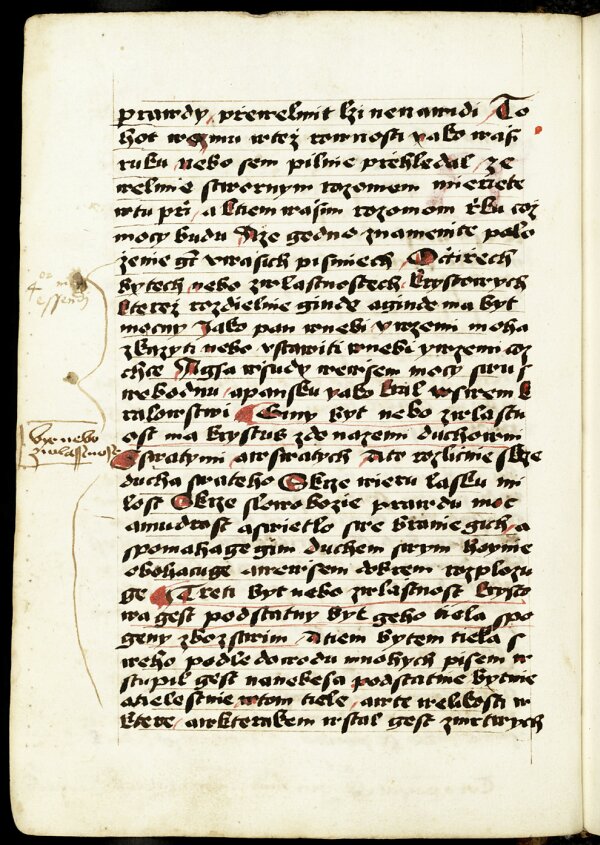 prawdy przewelmit lzi nenawidi To
hot wezmu wtez rownosti yako wasi
ruku nebo sem pilnie przehledal ze
welmie stwornym rozomom mierzete
wtu przi a ktiem wasim rozomom rku coz
mocy budu Aze gedno znamenite polo
zenie gt vwasich pismiech Octirech
bytech nebo zwlastnostech krystowych
kterez rozdielnie ginde aginde ma byt
mocny Jako pan wnebi vwzemi moha
zkazyti nebo vstawiti wnebi ywzemi coz
chce Aigsa wsudy wewsem mocy swu s
webodnu apansku yako kral wswem k
ralowstwi Giny byt nebo zwlastn
ost ma krystus zde nazemi duchowni
Sswatymi awswatych Ato rozlicnie skrze
ducha swateho Skrze wieru lasku mi
lost Skrze slowo bozie prawdu moc
amudrost aswietlo swe branie gich a
spomahage gim duchem swym hoynie
obohacuge awewsem dobrem rozplozu
ge Treti byt nebo zwlastnost krysto
wa gest podstatny byt geho tiela spo
geny zbozstwim Atiem bytem tiela s
weho podle dowodu mnohych pisem w
stupil gest nanebesa podstatnie bytnie
atielestnie wtom tiele awte welikosti w
ktere awkterakem wstal gest zmrtwych
4or
essendi
byt nebo
zwlasstnost